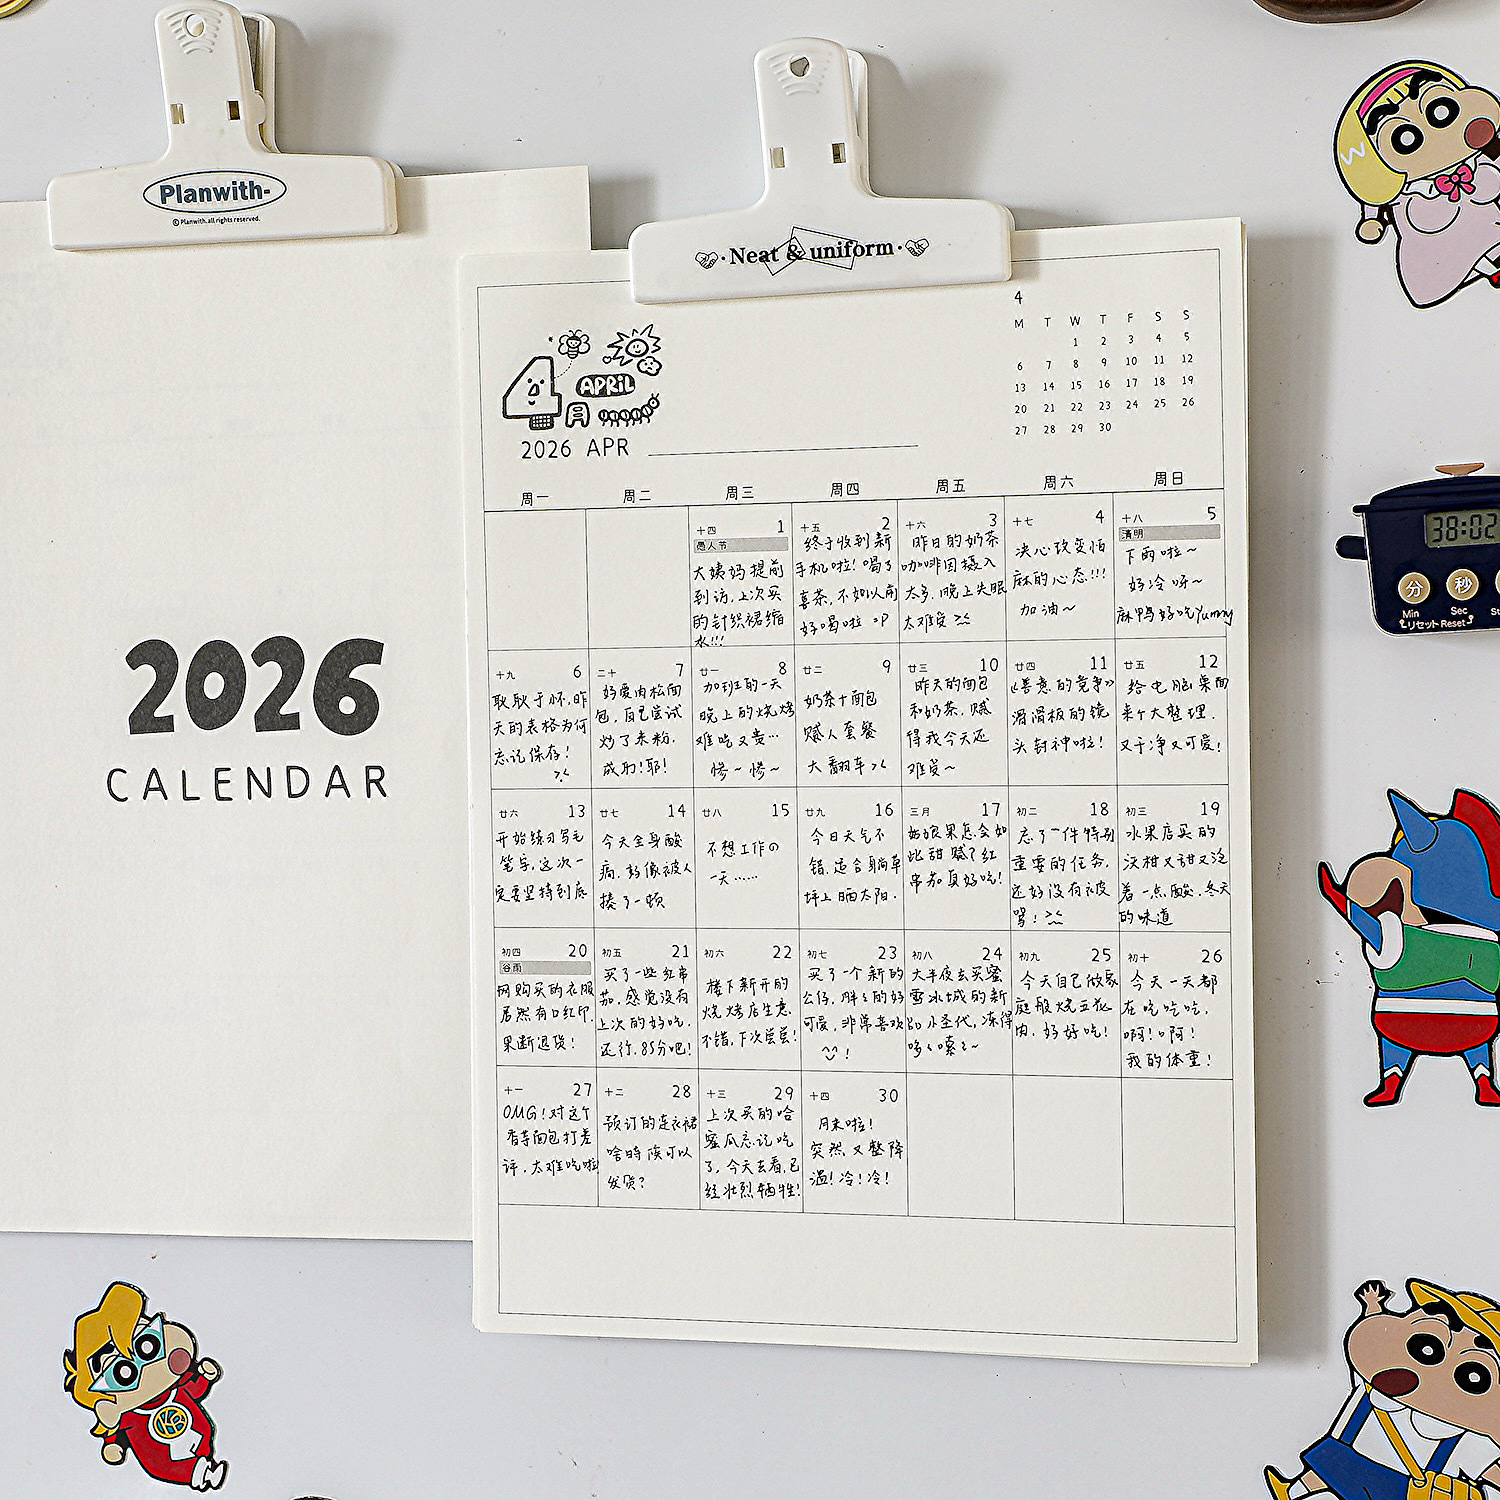 Planwith-
© Planwith.all rights reserved.
2026
CALENDAR
·Neat & uniform·
4月
APRIL
2026 APR
4
M T W T F S S
1 2 3 4 5
6 7 8 9 10 11 12
13 14 15 16 17 18 19
20 21 22 23 24 25 26
27 28 29 30
周一 周二 周三 周四 周五 周六 周日
十四 1
愚人节
大姨妈提前
到访,上次买
的针织裙缩
水!!!
十五 2
终于收到新
手机啦!喝了
喜茶,不如以前
好喝啦 :P
十六 3
昨日的奶茶
咖啡因摄入
太多,晚上失眠
太难受
十七 4
决心改变怕
麻的心态!!!
加油~
十八 5
清明
下雨啦~
好冷呀~
麻鸭好吃Yummy
十九 6
耿耿于怀,昨
天的表格为何
忘记保存!
二十 7
好爱肉松面
包,自己尝试
炒了米粉,
成功!耶!
廿一 8
加班的一天
晚上的烧烤
难吃又贵…
惨~惨~
廿二 9
奶茶+面包
腻人套餐
大翻车
廿三 10
昨天的面包
和奶茶,腻
得我今天还
难受~
廿四 11
《善意的竞争》
滑滑板的镜
头封神啦!
廿五 12
给电脑桌面
来个大整理.
又干净又可爱!
廿六 13
开始练习写毛
笔字,这次一
定要坚持到底
廿七 14
今天全身酸
痛,好像被人
揍了一顿
廿八 15
不想工作の
一天……
廿九 16
今日天气不
错,适合躺草
坪上晒太阳.
三月 17
姑娘果怎会如
此甜 腻?红
串茄真好吃!
初二 18
忘了一件特别
重要的任务,
还好没有被
骂!
初三 19
水果店买的
沃柑又甜又泛
着一点酸.冬天
的味道
初四 20
谷雨
网购买的衣服
居然有口红印,
果断退货!
初五 21
买了一些红串
茄,感觉没有
上次的好吃.
还行,85分吧!
初六 22
楼下新开的
烧烤店生意
不错,下次尝尝!
初七 23
买了一个新的
公仔,胖乎的好
可爱,非常喜欢
!
初八 24
大半夜去买蜜
雪冰城的新
品小圣代,冻得
哆く嗦く~
初九 25
今天自己做家
庭般烧五花
肉,好好吃!
初十 26
今天一天都
在吃吃吃,
啊!啊!
我的体重!
十一 27
OMG!对这个
香芋面包打差
评,太难吃啦
十二 28
预订的连衣裙
啥时候可以
发货?
十三 29
上次买的哈
蜜瓜忘记吃
了,今天去看,已
经壮烈牺牲!
十四 30
月末啦!
突然又整降
温!冷!冷!
38:02
分 秒
Min Sec
リセット Reset